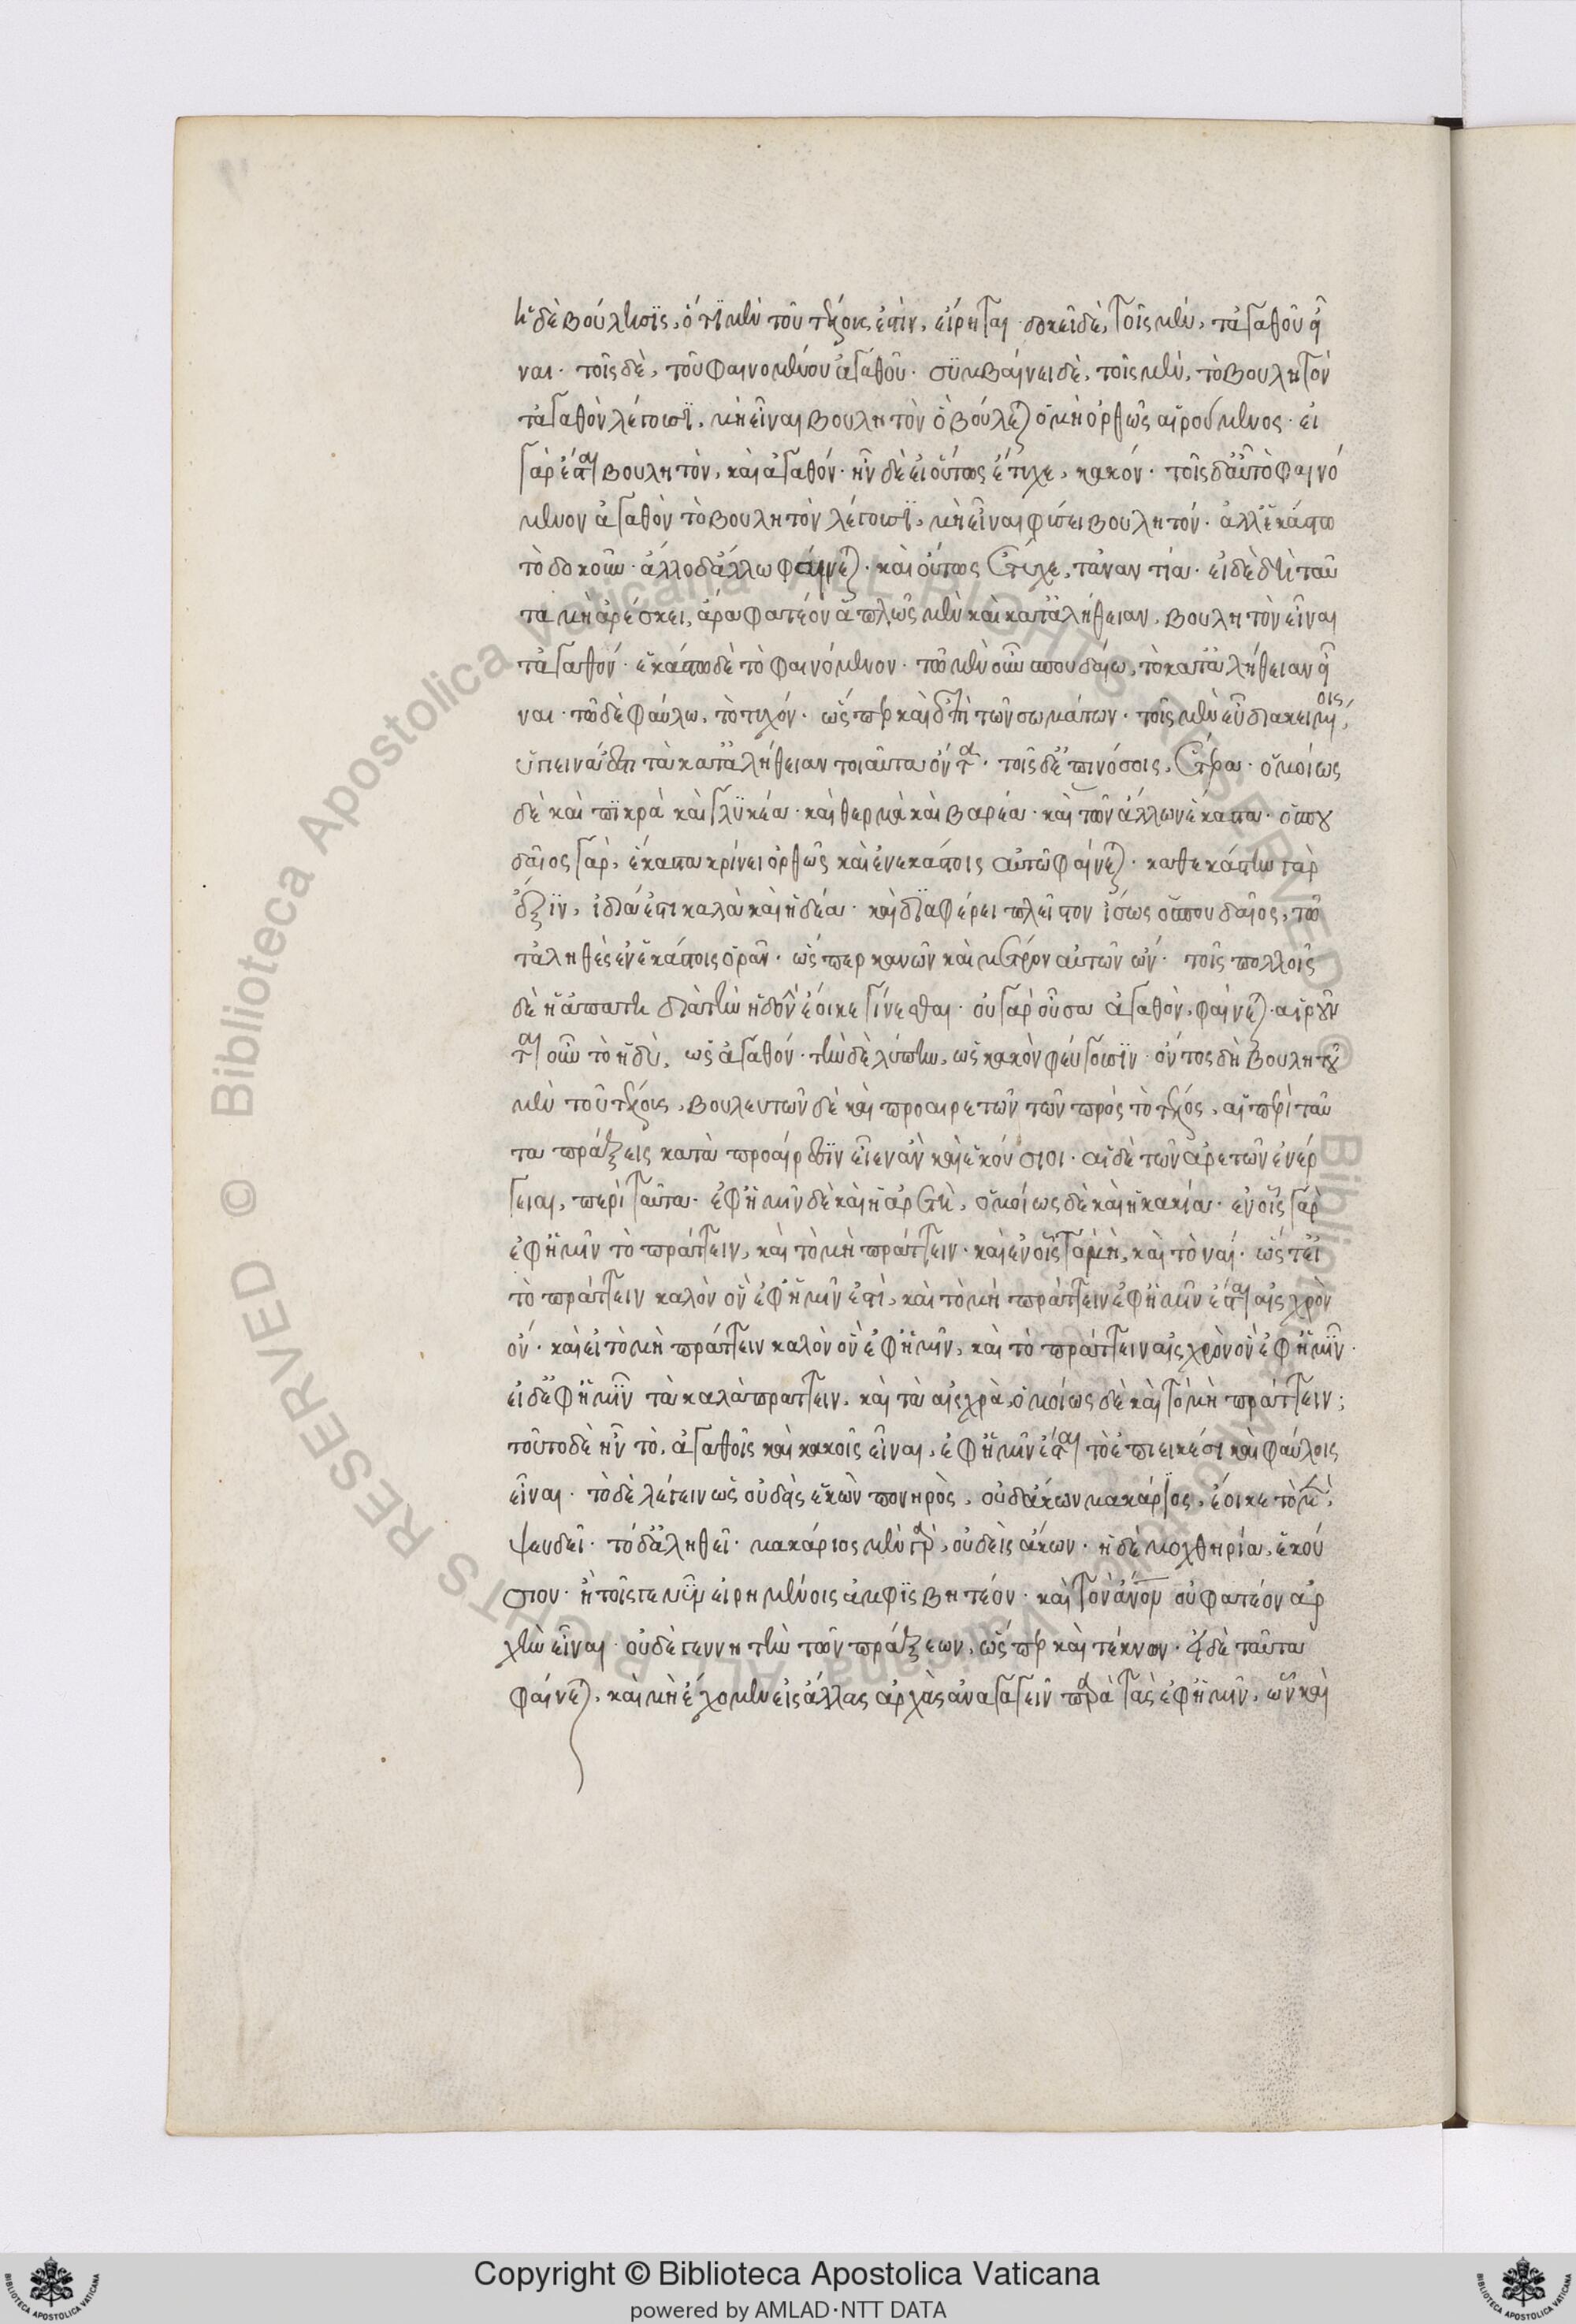 ἡ δὲ βούλησϊς, ὅτϊ μὲν τοῦ τέλους ἐστὶν, εἴρηται· δοκεῖ δὲ, τοῖς μὲν, τἀγαθοῦ εἶ
ναι· τοῖς δὲ, τοῦ φαινομένου ἀγαθοῦ· συμβαίνει δὲ, τοῖς μὲν, τὸ βουλητὸν
τἀγαθὸν λέγουσϊ, μὴ εἶναι βουλητὸν ὃ βούλεται ὁ μὴ ὀρθῶς αἱρούμενος· εἰ
γὰρ ἔσται βουλητὸν, καὶ ἀγαθόν· ἦν δὲ εἰ οὕτως ἔτυχε, κακόν· τοῖς δ' αὖ τὸ φαινό
μενον ἀγαθὸν τὸ βουλητὸν λέγουσϊ, μὴ εἶναι φύσει βουλητόν· ἀλλ' ἑκάστω
τὸ δοκοῦν· ἄλλο δ' ἄλλω φαίνεται· καὶ οὕτως ἔτυχε, τἀναντία· εἰ δὲ δὴ ταῦ
τα μὴ ἀρέσκει, ἆρα φατέον ἁπλῶς μὲν καὶ κατ' ἀλήθειαν, βουλητὸν εἶναι
τἀγαθόν· ἑκάστω δὲ τὸ φαινόμενον· τῶ μὲν οὖν σπουδαίω, τὸ κατ' ἀλήθειαν εἶ
ναι· τῶ δὲ φαύλω, τὸ τυχόν· ὥσπερ καὶ ἐπὶ τῶν σωμάτων· τοῖς μὲν εὖ διακειμένοις,
ὑγιεινά ἐστι τὰ κατ' ἀλήθειαν τοιαῦτα ὄντα· τοῖς δ' ἐπινόσοις, ἕτερα· ὁμοίως
δὲ καὶ πϊκρὰ καὶ γλυκέα· καὶ θερμὰ καὶ βαρέα· καὶ τῶν ἄλλων ἕκαστα· ὁ σπου
δαῖος γὰρ, ἕκαστα κρίνει ὀρθῶς καὶ ἐν ἑκάστοις αὐτῶ φαίνεται· καθ' ἑκάστην γὰρ
ἕξϊν, ἴδιά ἐστι καλὰ καὶ ἡδέα· καὶ διαφέρει πλεῖστον ἴσως ὁ σπουδαῖος, τῶ
τἀληθὲς ἐν ἑκάστοις ὁρᾶν· ὥσπερ κανὼν καὶ μέτρον αὐτῶν ὤν· τοῖς πολλοῖς
δὲ ἡ ἀπάτη διὰ τὴν ἡδονὴν ἔοικε γίνεσθαι· οὐ γὰρ οὖσα ἀγαθὸν, φαίνεται· αἱροῦν
ται οὖν τὸ ἡδὺ, ὡς ἀγαθόν· τὴν δὲ λύπην, ὡς κακὸν φεύγουσϊν· ὄντος δὴ βουλητοῦ
μὲν τοῦ τέλους, βουλευτῶν δὲ καὶ προαιρετῶν τῶν πρὸς τὸ τέλος, αἱ περὶ ταῦ
τα πράξεις κατὰ προαίρεσϊν εἶεν ἂν καὶ ἑκούσιοι· αἱ δὲ τῶν ἀρετῶν ἐνέρ
γειαι, περὶ ταῦτα· ἐφ' ἡμῖν δὲ καὶ ἡ ἀρετὴ, ὁμοίως δὲ καὶ ἡ κακία· ἐν οἷς γὰρ
ἐφ' ἡμῖν τὸ πράττειν, καὶ τὸ μὴ πράττειν· καὶ ἐν οἷς τὸ μὴ, καὶ τὸ ναί· ὥστ' εἰ
τὸ πράττειν καλὸν ὂν ἐφ' ἡμῖν ἐστὶ, καὶ τὸ μὴ πράττειν ἐφ' ἡμῖν ἔσται αἰσχρὸν
ὄν· καὶ εἰ τὸ μὴ πράττειν καλὸν ὂν ἐφ' ἡμῖν, καὶ τὸ πράττειν αἰσχρὸν ὂν ἐφ' ἡμῖν·
εἰ δ' ἐφ' ἡμῖν τὰ καλὰ πράττειν, καὶ τὰ αἰσχρὰ, ὁμοίως δὲ καὶ τὸ μὴ πράττειν;
τοῦτο δὲ ἦν τὸ, ἀγαθοῖς καὶ κακοῖς εἶναι, ἐφ' ἡμῖν ἔσται τὸ ἐπιεικέσι καὶ φαύλοις
εἶναι· τὸ δὲ λέγειν ὡς οὐδεὶς ἑκὼν πονηρὸς, οὐδ' ἄκων μακάριος, ἔοικε τὸ μὲν,
ψευδεῖ· τὸ δ' ἀληθεῖ· μακάριος μὲν γὰρ, οὐδεὶς ἄκων· ἡ δὲ μοχθηρία, ἑκού
σιον· ἢ τοῖς γε νῦν εἰρημένοις ἀμφϊσβητέον· καὶ τὸν ἄνον οὐ φατέον ἀρ
χὴν εἶναι· οὐδὲ γεννητὴν τῶν πράξεων, ὥσπερ καὶ τέκνων· εἰ δὲ ταῦτα
φαίνεται, καὶ μὴ ἔχομεν εἰς ἄλλας ἀρχὰς ἀναγαγεῖν παρὰ τὰς ἐφ' ἡμῖν, ὧν καὶ
Copyright © Biblioteca Apostolica Vaticana
powered by AMLAD·NTT DATA